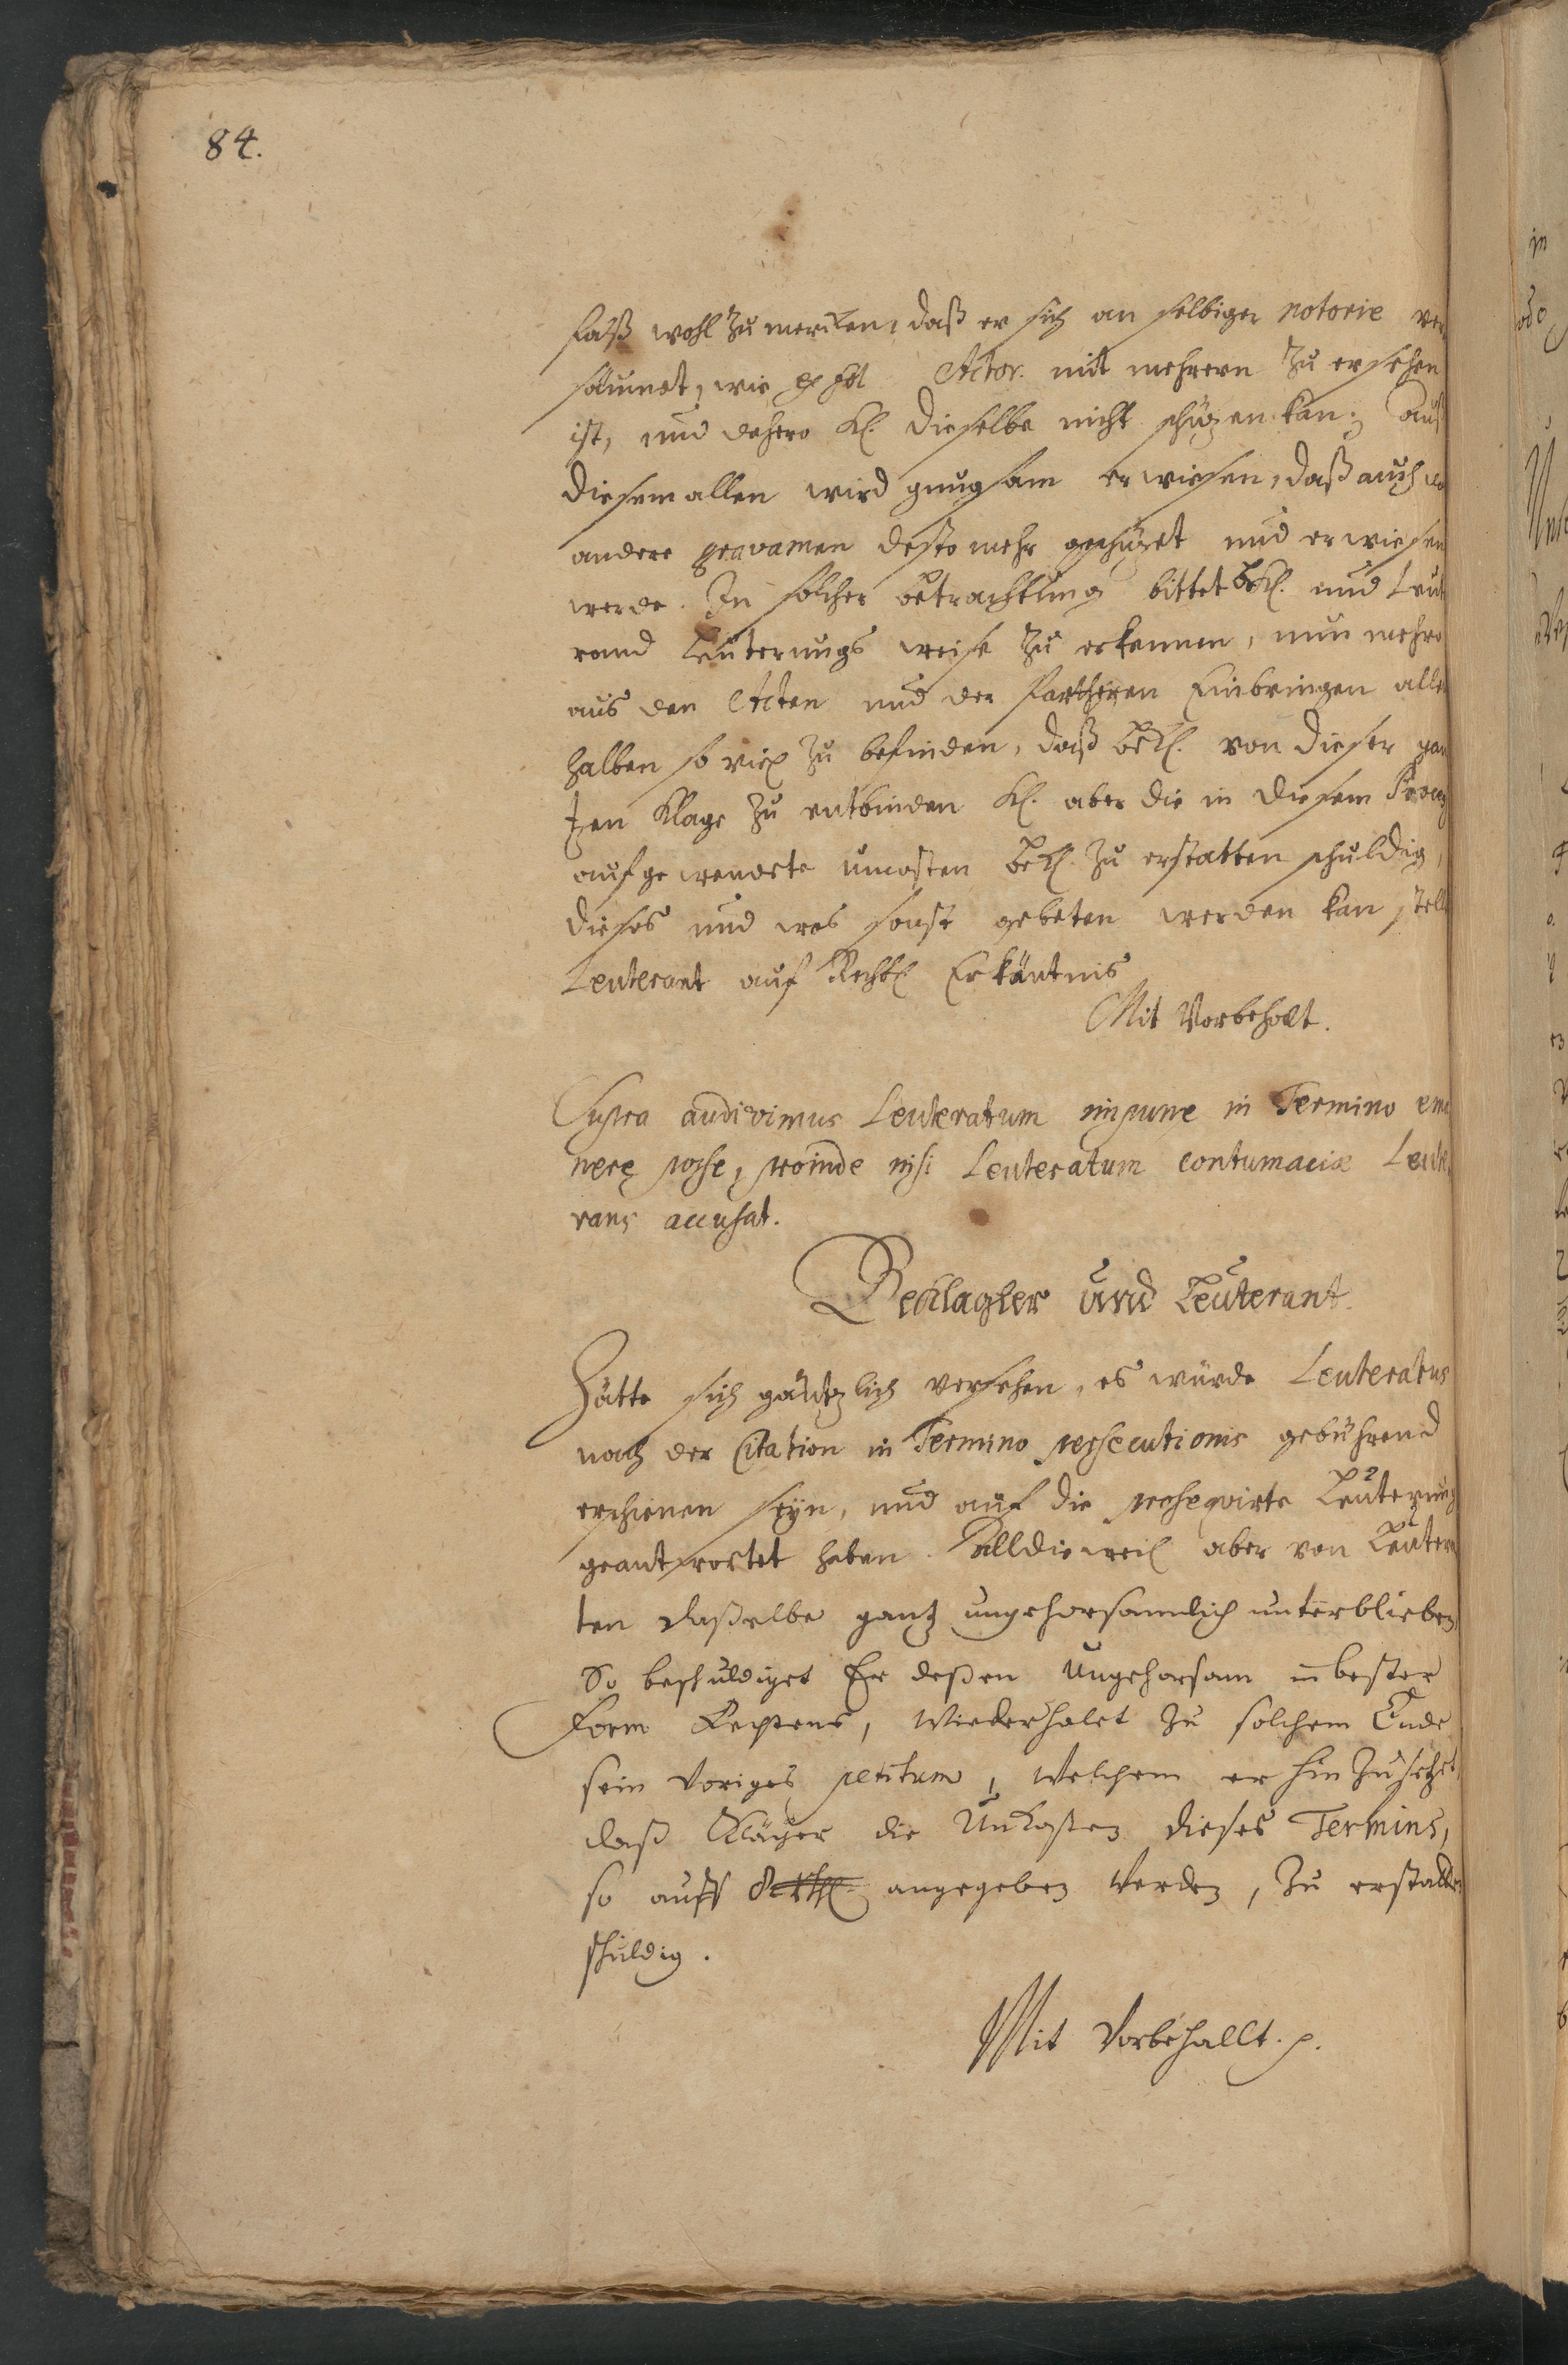 84.
faß wohl zu mercken, daß er sich an selbiger notorie ver
säumet, wie ex fol Actor. mit mehrern zu ersehen
ist, und dahero Kl. dieselbe nicht schüzen kan; Auß
diesem allen wird gnugsam erwiesen, daß auch
andere gravamen desto mehr geschüzet und erwiesen
werde. In solcher betrachtung bittet Bekl. und Leut
rand Leuterungs weise zu erkennen, nun mehro
aus den Acten und der Partheyen Einbringen allent
halben so viel zu befinden, daß Bekl. von dieser gan
tzen Klage zu entbinden Kl. aber die in diesem Proceß
aufgewendete uncosten Bekl. zu erstatten schuldig,
dieses und was sonst gebeten werden kan stellt
Leuterant auf Rechtl. Erkäntnis
Mit Vorbehalt.
Supra audivimus Leuteratum impune in Termino ema
nere posse, proinde nisi Leuteratum contumaciæ Leute
rans accusat.
Beklagter und Leuterant.
Hätte sich gäntzlich versehen, es würde Leuteratus
nach der Citation in Termino persecutionis gebührend
erschienen seyn, und auf die prosequirte Leuterung
geantwortet haben. Alldieweil aber von Leutera
ten daßelbe gantz ungehorsamlich unterblieben,
So beschuldiget Er deßen Ungehorsam in bester
Form Rechtens, wiederholet zu solchem Ende
sein voriges petitum, welchem er hinzusetzet,
daß Kläger die Unkosten dieses Termins,
so auff angegeben werden, zu erstatten
schuldig.
Mit Vorbehallt. p.